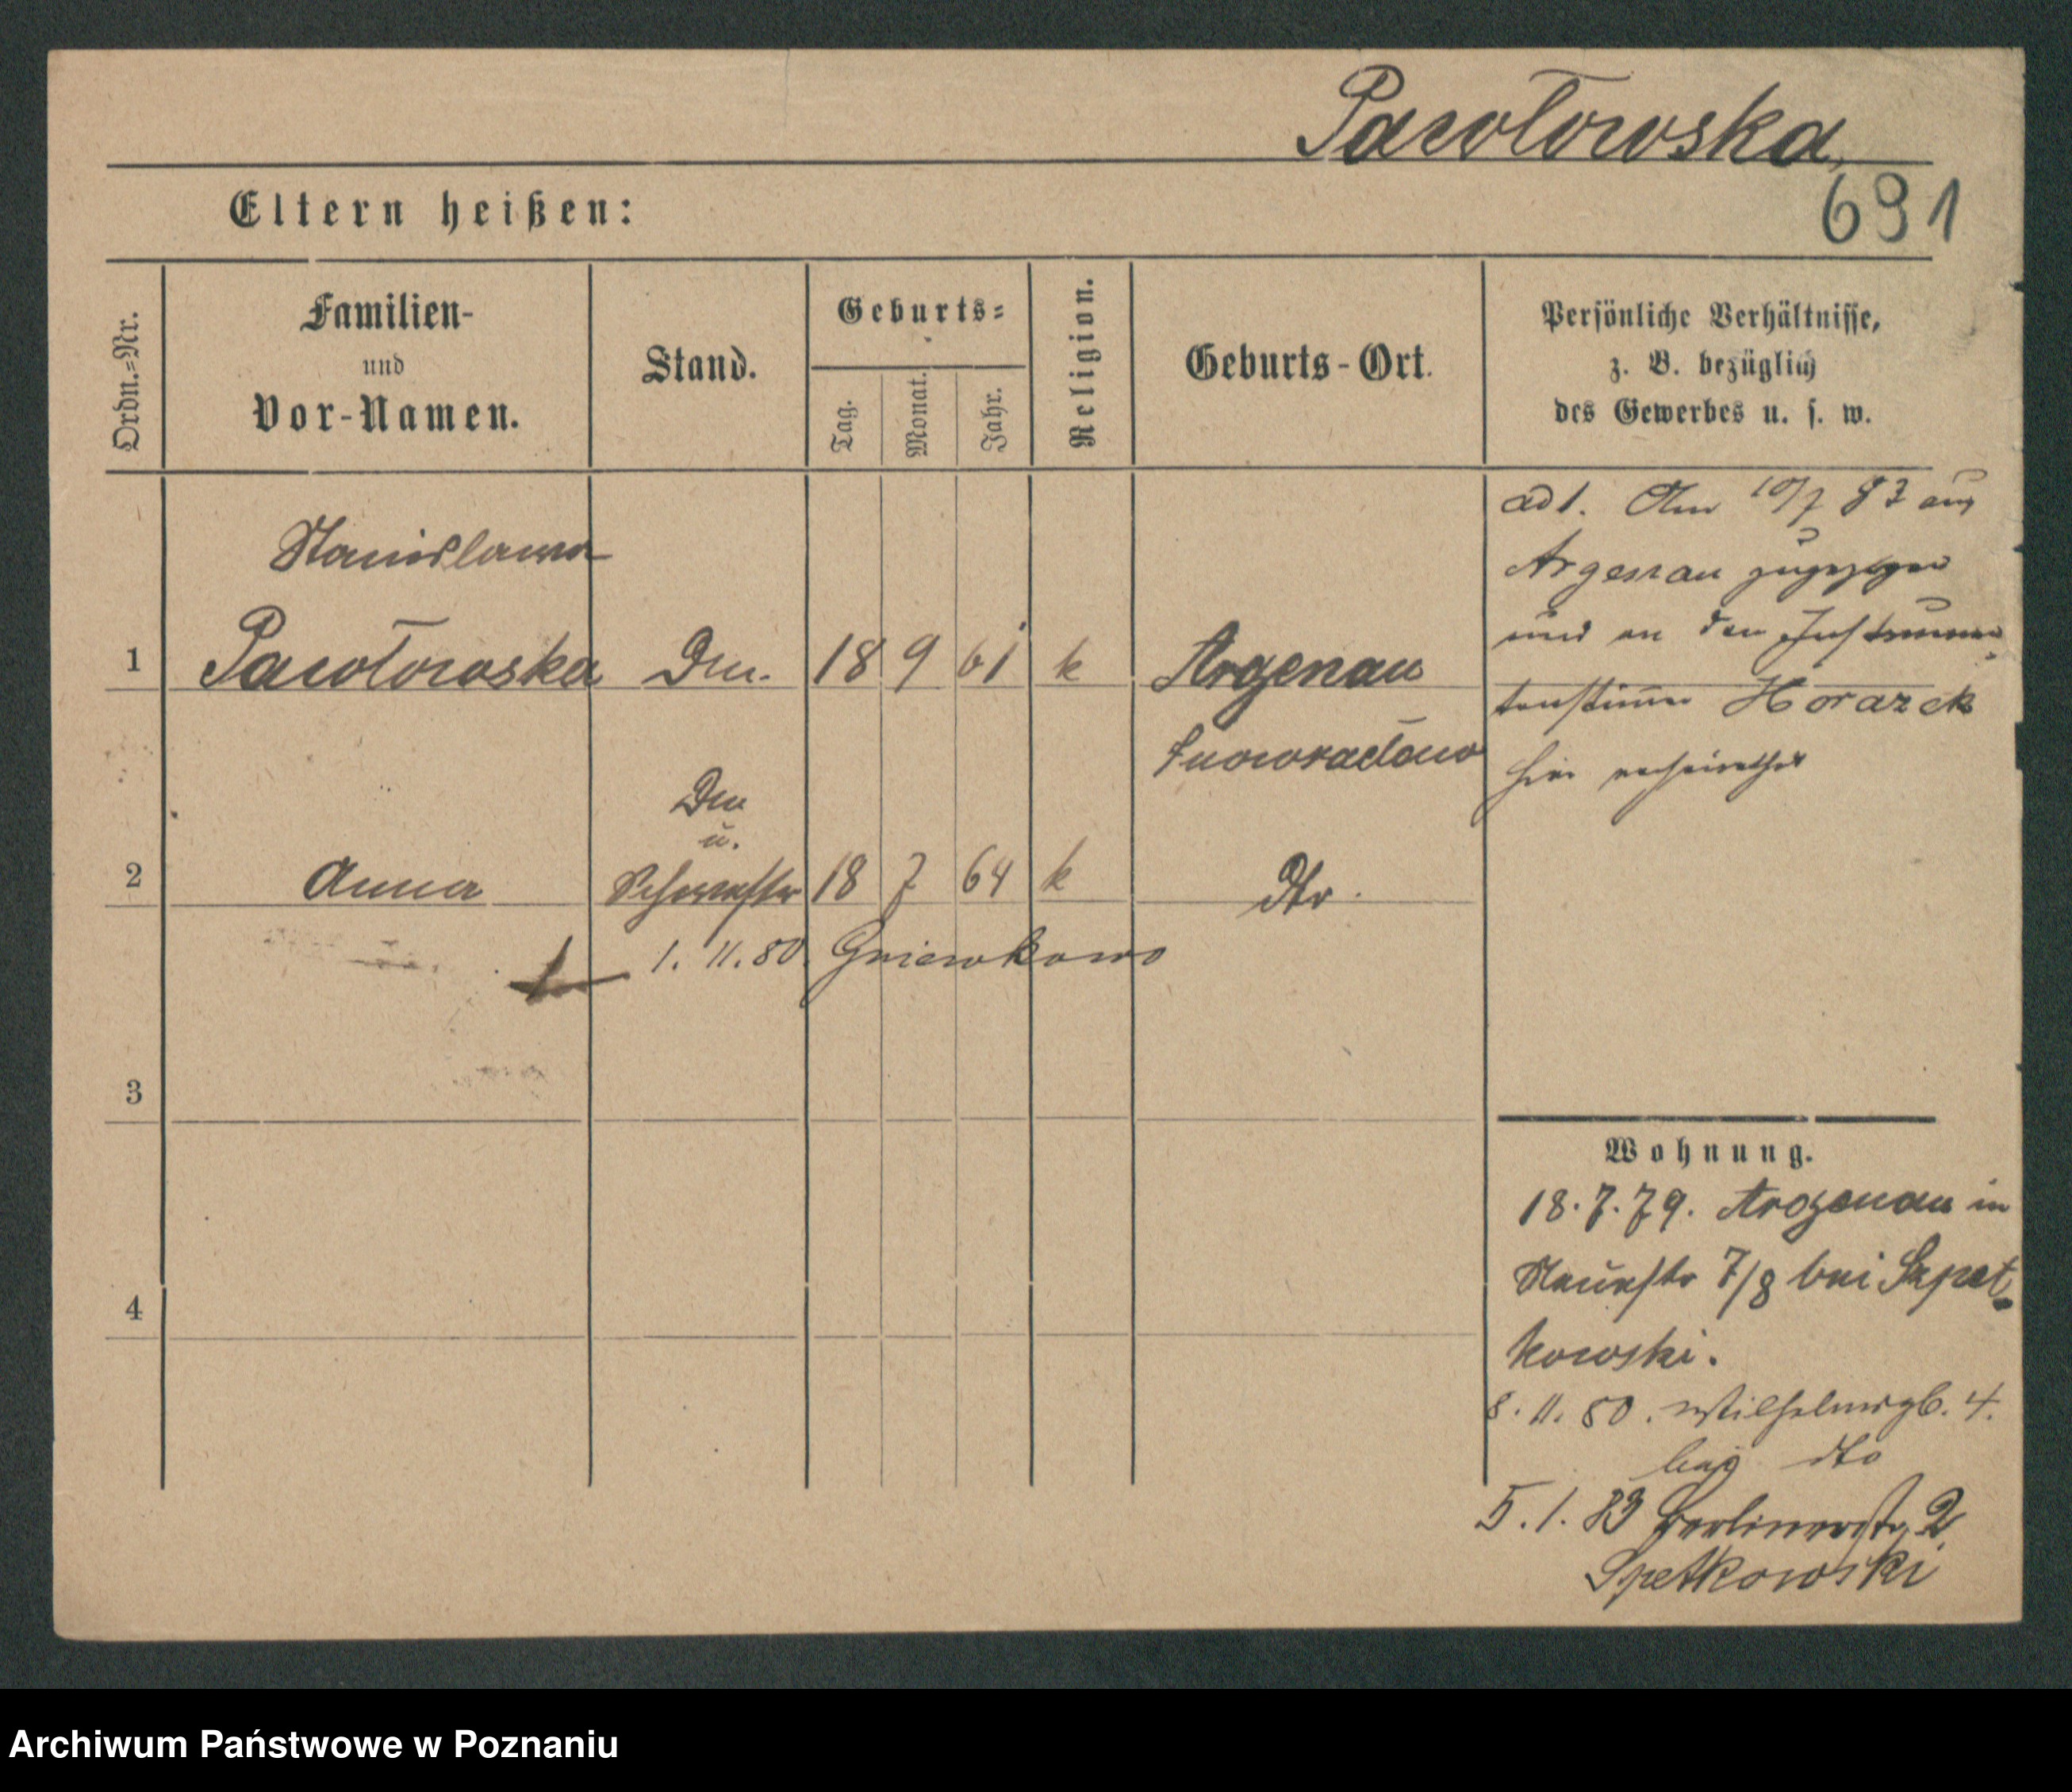 Pawłowska,
691
Eltern heißen:
Ordn.=Nr.
Familien-
und
Vor-Namen.
Stand.
Geburts=
Tag.
Monat.
Jahr.
Religion.
Geburts-Ort.
Persönliche Verhältnisse,
z. B. bezüglich
des Gewerbes u. s. w.
Stanislawa
1 Pawłowska 18 9 61 k Argenau
Inowracław
ad 1. Am 10/7 83 aus
Argenau zugezogen
und an den Instrumen
Horazek
hier verheirathet
u.
2 Anna Schwester 18 7 64 k dto.
1. 11. 80. Gniewkowo
3
4
Wohnung.
18. 7. 79. Argenau in
Neuestr 7/8 bei Szpet
kowski.
8. 11. 80. Wilhelmspl. 4.
bei dto
5. 1. 83 Berlinerstr 2
Spetkowski
Archiwum Państwowe w Poznaniu